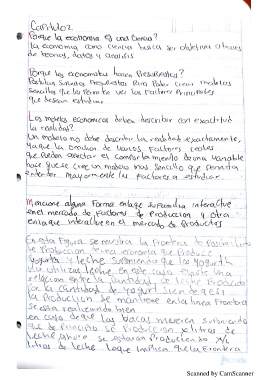 Capitulo 2
Porque la economia es una Ciencia?
La economia como Ciencia busca ser objetiva atraves
de teorias, datos y analisis
Porque los economistas hacen Presupuestos?
Realizan Presupuestos Para Poder Crear modelos
Sencillos que les Permite ver los Factores Principales
que desean estudiar
Los modelos economicos deben describir con exactitud
la realidad?
Un modelo no debe describir la realidad exactamente,
ya que la omision de varios Factores reales
que puedan afectar el comportamiento de una variable
hace que se cree un modelo mas Sencillo que permita
entender mayormente los Factores a estudiar
Mencione alguna Forma en la que su Familia interactue
en el mercado de Factores de Produccion y otra
en la que interactue en el mercado de Productos
En esta Figura se muestra la Frontera de Posibilidades
de Produccion
yogurth y leche
utiliza leche en este caso existe una
relacion entre la Cantidad de leche Producida
por la Cantidad de yogurt
la Produccion se mantiene en la linea Frontera
se esta realizando bien
en caso de que las vacas mueren
que de Principio se Produccion x litros de
leche ahora se estaran Produciendo x/2
litros de leche la Frontera
Scanned by CamScanner